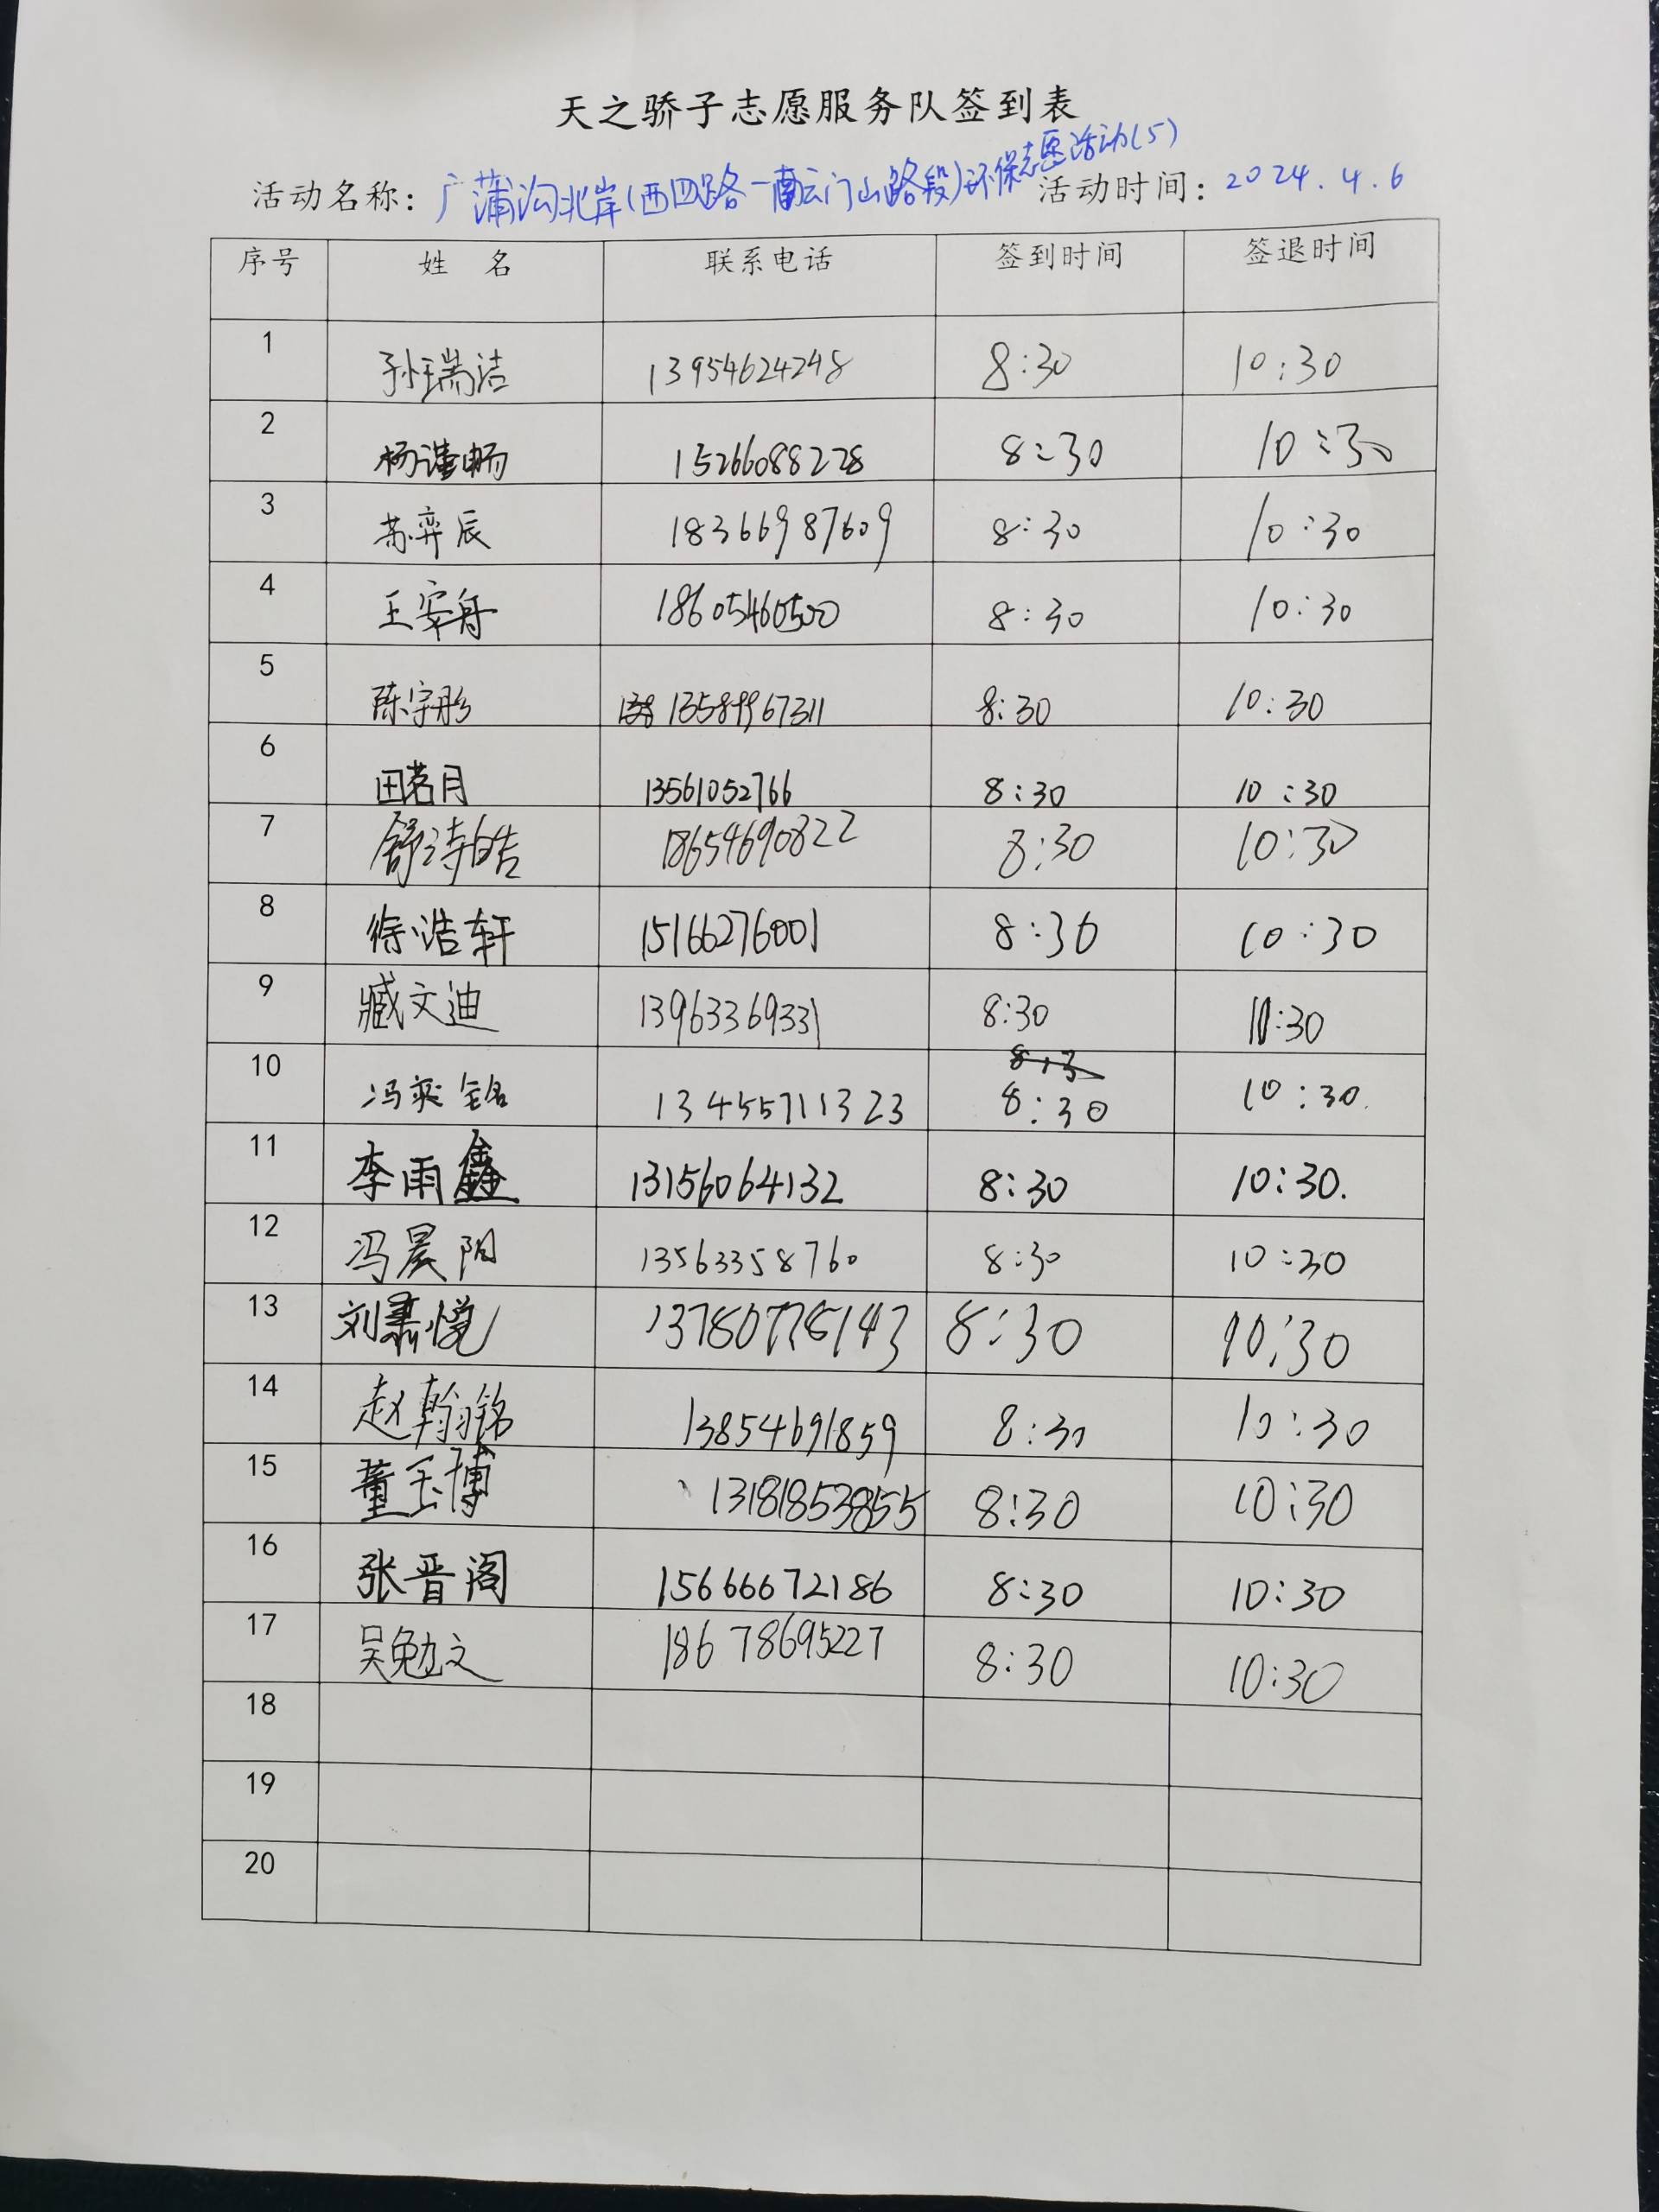 天之骄子志愿服务队签到表
活动名称：广蒲沟北岸(西四路-南云门山路段)环保志愿活动(5) 活动时间：2024.4.6
序号 姓 名 联系电话 签到时间 签退时间
1 孙瑞洁 13954624248 8:30 10:30
2 杨谨畅 15266088228 8:30 10:30
3 苏弈辰 18366987609 8:30 10:30
4 王安舟 18605460500 8:30 10:30
5 陈宇彤 13589967311 8:30 10:30
6 田茗月 13561052766 8:30 10:30
7 舒诗皓 18654690822 8:30 10:30
8 徐浩轩 15166276001 8:30 10:30
9 臧文迪 13963369331 8:30 10:30
10 冯奕铭 13455711323 8:30 10:30.
11 李雨鑫 13156064132 8:30 10:30.
12 冯晨阳 13563358760 8:30 10:30
13 刘悦 13780778143 8:30 10:30
14 赵翰铭 13854691859 8:30 10:30
15 董玉博 13181853855 8:30 10:30
16 张晋阁 15666672186 8:30 10:30
17 吴勉文 18678695227 8:30 10:30
18
19
20